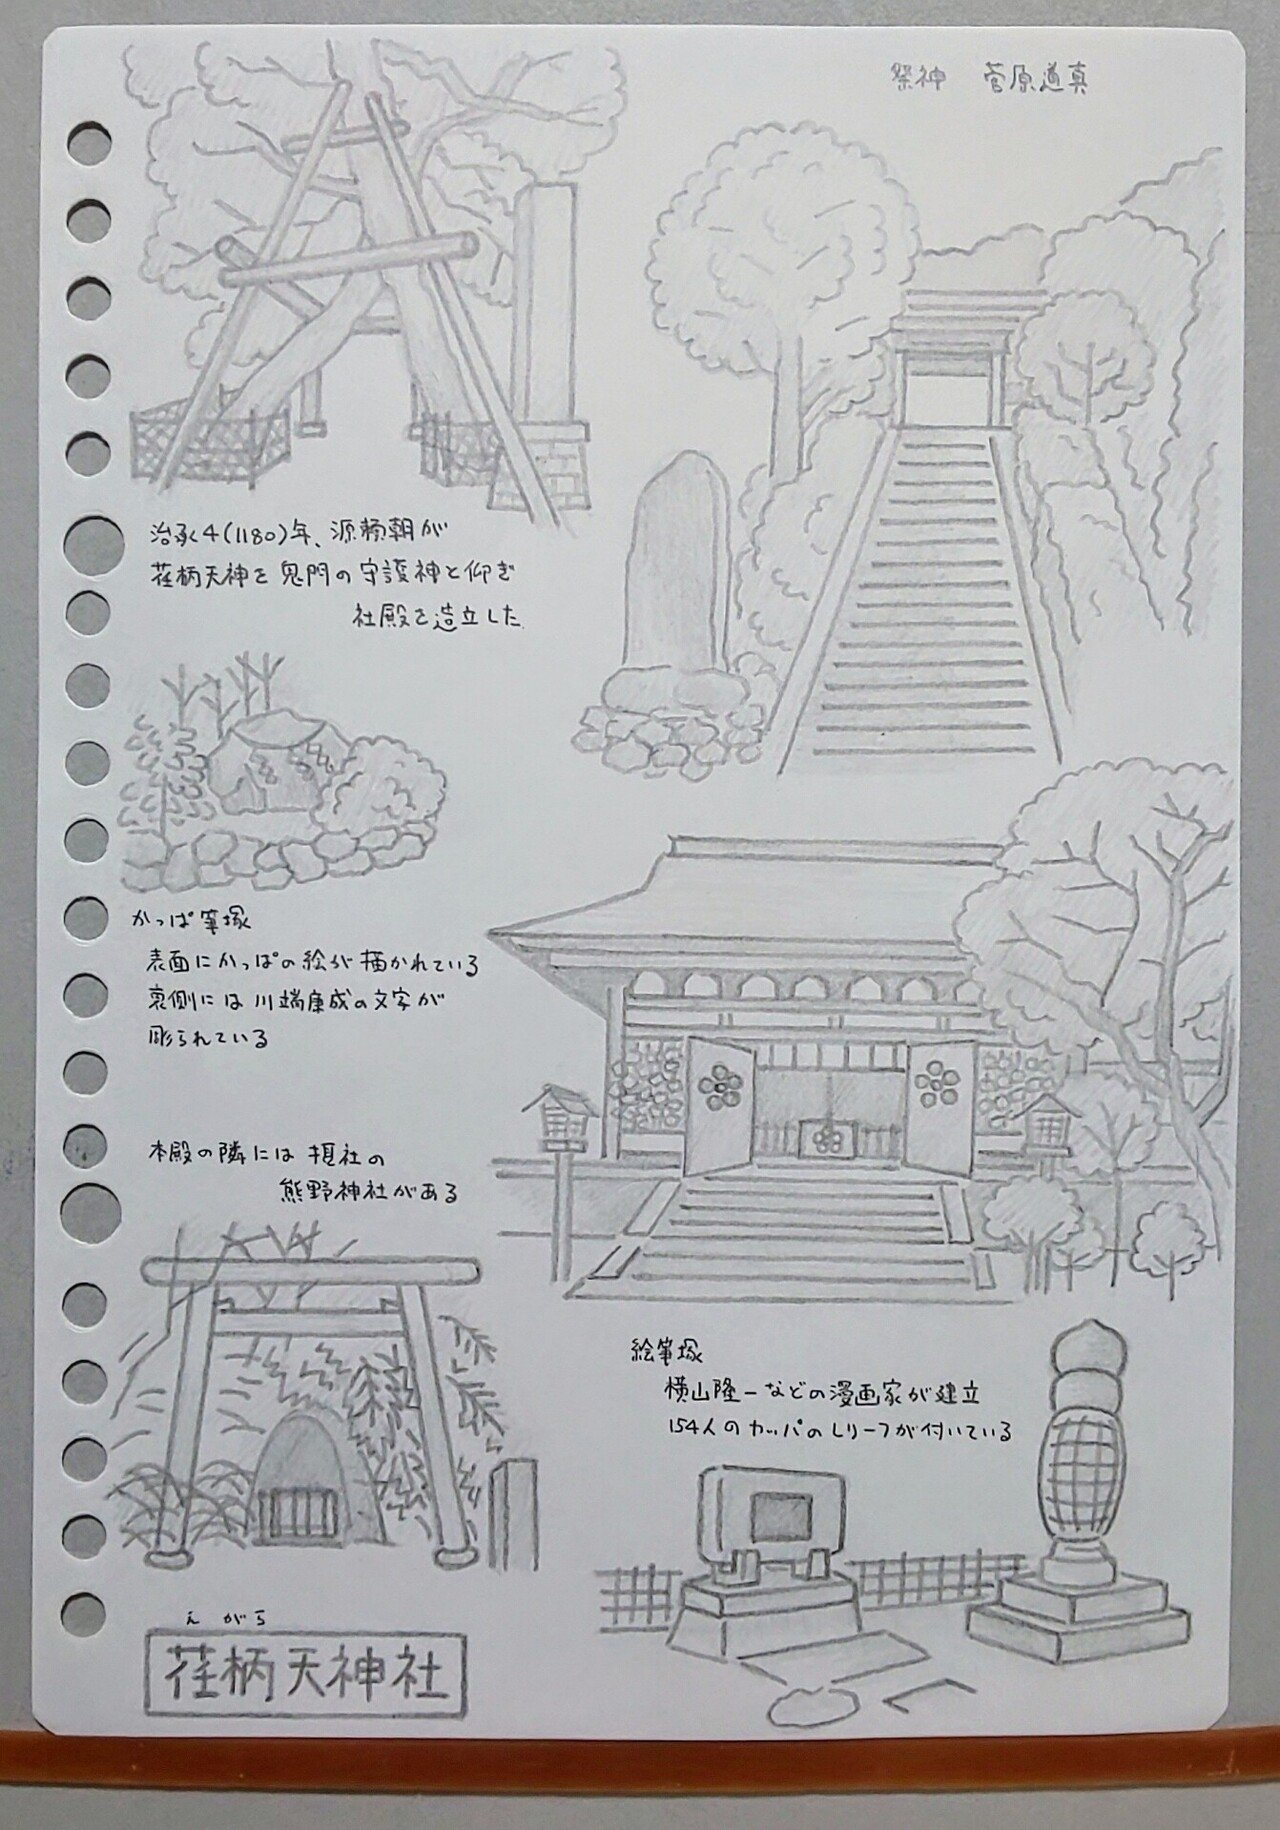 祭神 菅原道真
治承4(1180)年、源頼朝が
荏柄天神を鬼門の守護神と仰ぎ
社殿を造立した
かっぱ筆塚
表面にかっぱの絵が描かれている
裏側には川端康成の文字が
彫られている
本殿の隣には摂社の
熊野神社がある
絵筆塚
横山隆一などの漫画家が建立
154人のカッパのレリーフが付いている
えがら
荏柄天神社